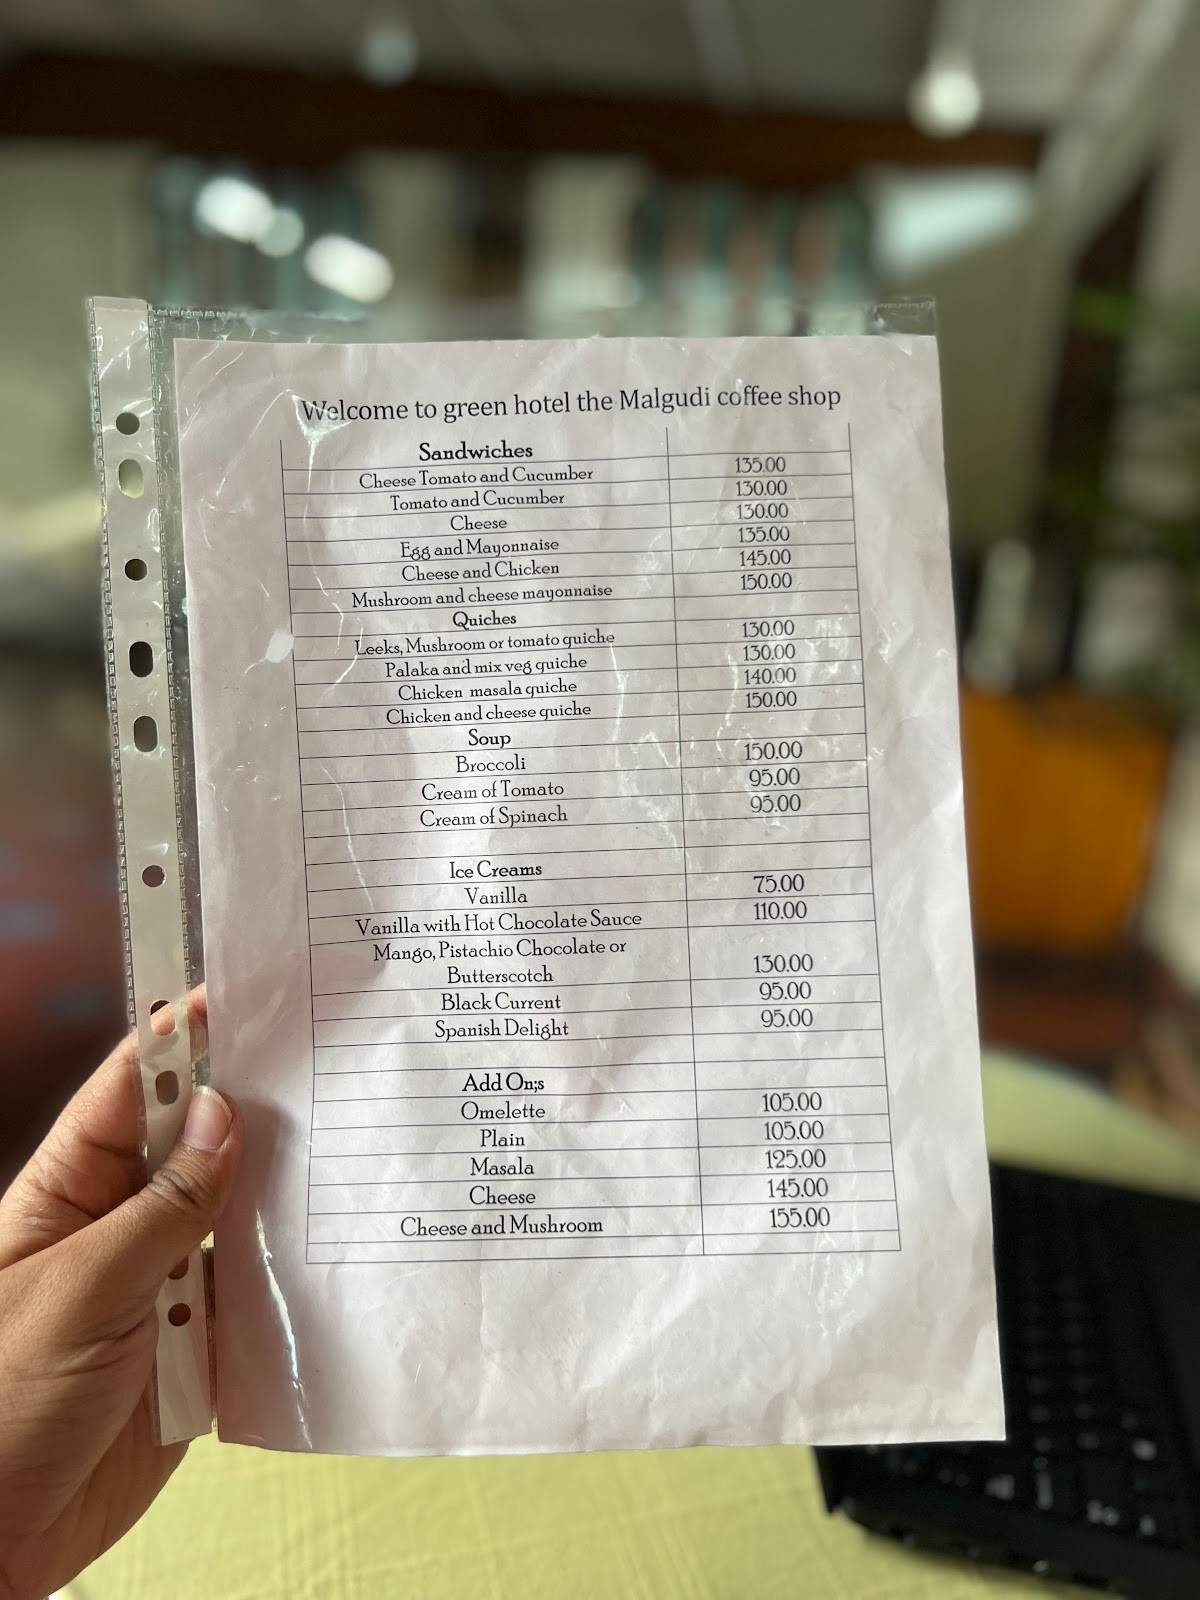 Welcome to green hotel the Malgudi coffee shop
Sandwiches
Cheese Tomato and Cucumber 135.00
Tomato and Cucumber 130.00
Cheese 130.00
Egg and Mayonnaise 135.00
Cheese and Chicken 145.00
Mushroom and cheese mayonnaise 150.00
Quiches
Leeks, Mushroom or tomato quiche 130.00
Palaka and mix veg quiche 130.00
Chicken masala quiche 140.00
Chicken and cheese quiche 150.00
Soup
Broccoli 150.00
Cream of Tomato 95.00
Cream of Spinach 95.00
Ice Creams
Vanilla 75.00
Vanilla with Hot Chocolate Sauce 110.00
Mango, Pistachio Chocolate or
Butterscotch 130.00
Black Current 95.00
Spanish Delight 95.00
Add On;s
Omelette 105.00
Plain 105.00
Masala 125.00
Cheese 145.00
Cheese and Mushroom 155.00